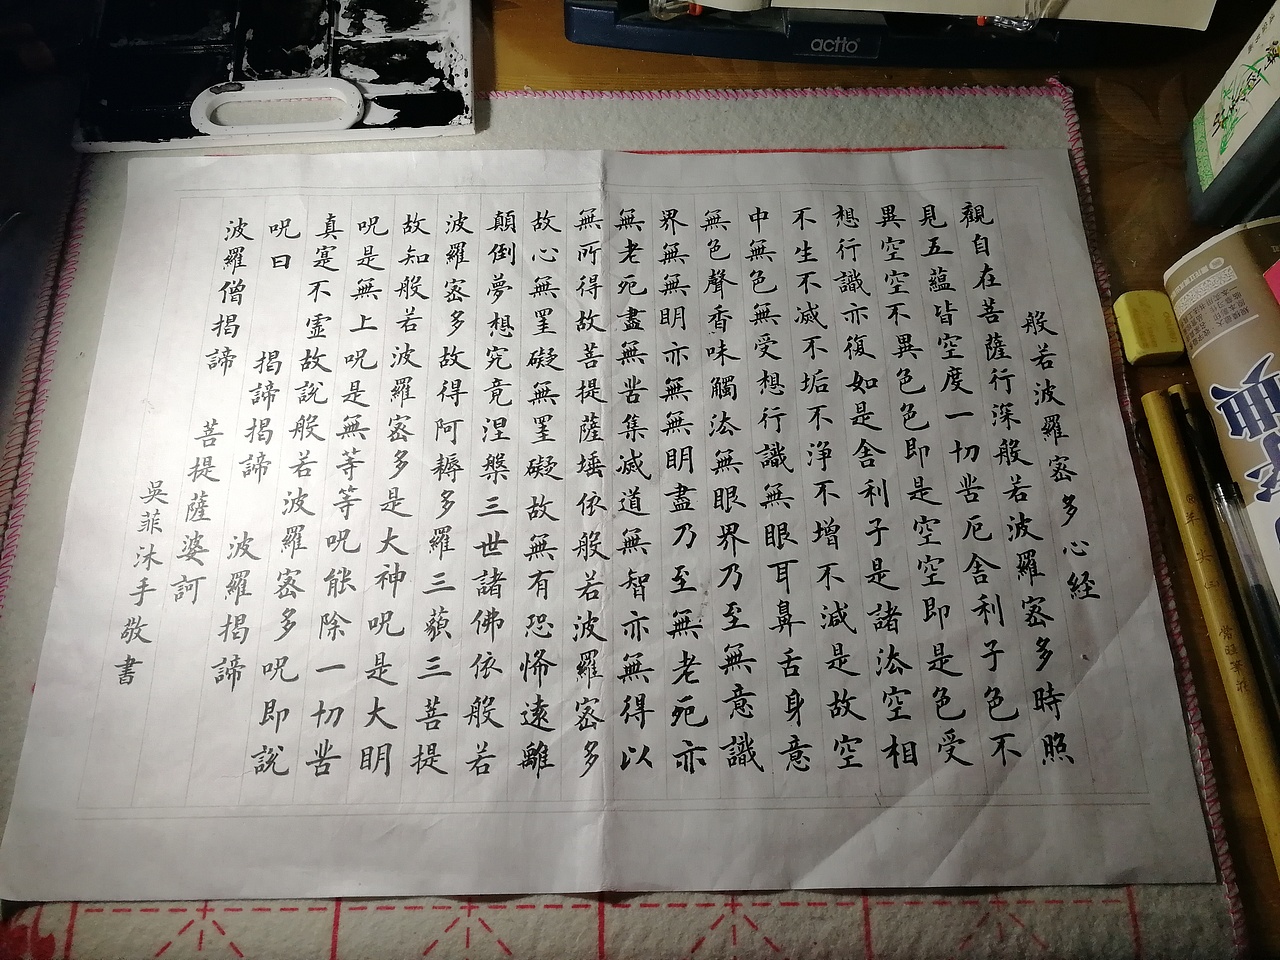 般若波羅密多心経
觀自在菩薩行深般若波羅密多時照
見五蘊皆空度一切苦厄舍利子色不
異空空不異色色即是空空即是色受
想行識亦復如是舍利子是諸法空相
不生不滅不垢不淨不增不減是故空
中無色無受想行識無眼耳鼻舌身意
無色聲香味觸法無眼界乃至無意識
界無無明亦無無明盡乃至無老死亦
無老死盡無苦集滅道無智亦無得以
無所得故菩提薩埵依般若波羅密多
故心無罣礙無罣礙故無有恐怖遠離
顛倒夢想究竟涅槃三世諸佛依般若
波羅密多故得阿耨多羅三藐三菩提
故知般若波羅密多是大神呪是大明
呪是無上呪是無等等呪能除一切苦
真寔不虛故說般若波羅密多呪即說
呪曰 揭諦揭諦 波羅揭諦
波羅僧揭諦 菩提薩婆訶
吳菲沐手敬書
actto